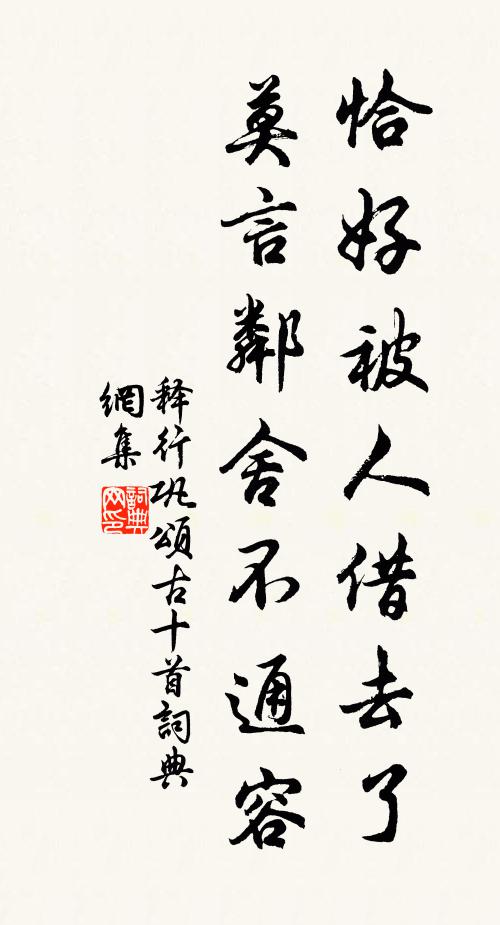 恰好被人借去了
莫言鄰舍不通容
释行巩頌古十首詞典
網集
詞典
网印